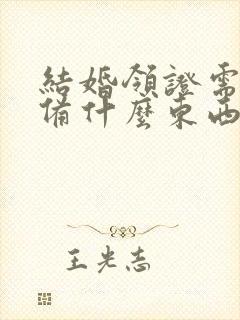 結婚領證需
備什麼東西
王光志